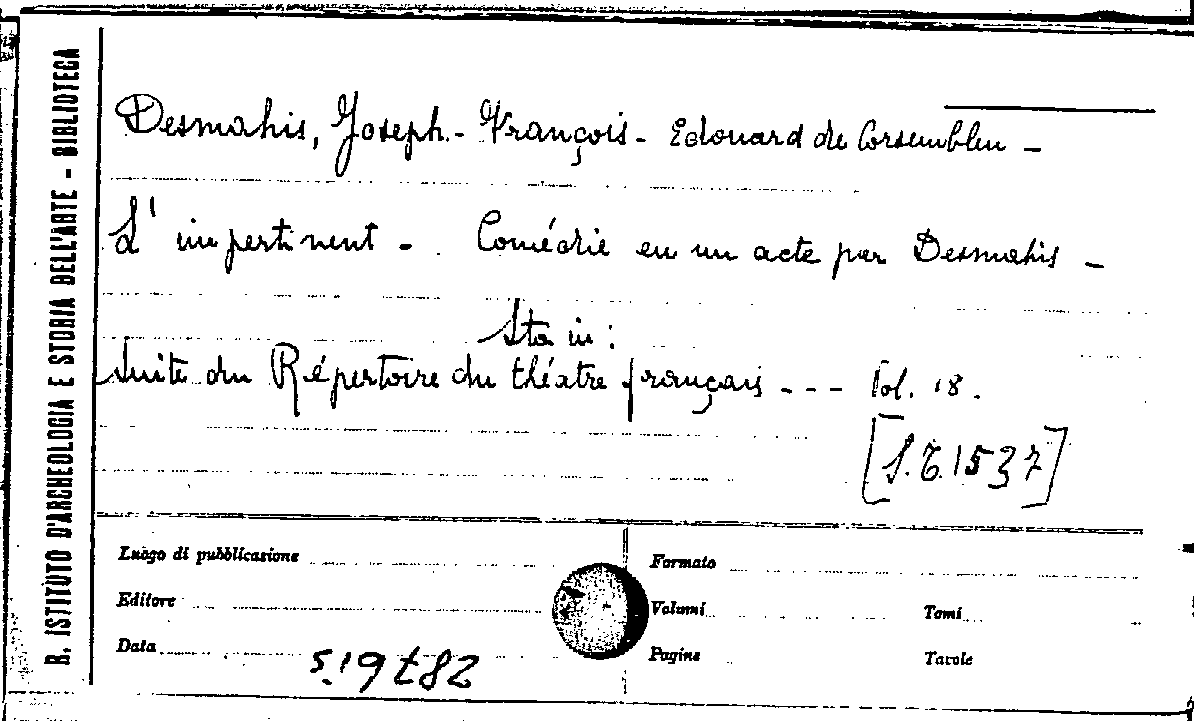 R. ISTITUTO D'ARCHEOLOGIA E STORIA DELL'ARTE - BIBLIOTECA
Desmahis, Joseph.- François- Edouard de Corsembleu -
L'impertinent - Comédie en un acte par Desmahis -
Sta in:
Suite du Répertoire du théatre français - - - Vol. 18.
[S.T.1537]
Luogo di pubblicazione
Formato
Editore
Volumi
Tomi
Data
Pagine
Tavole